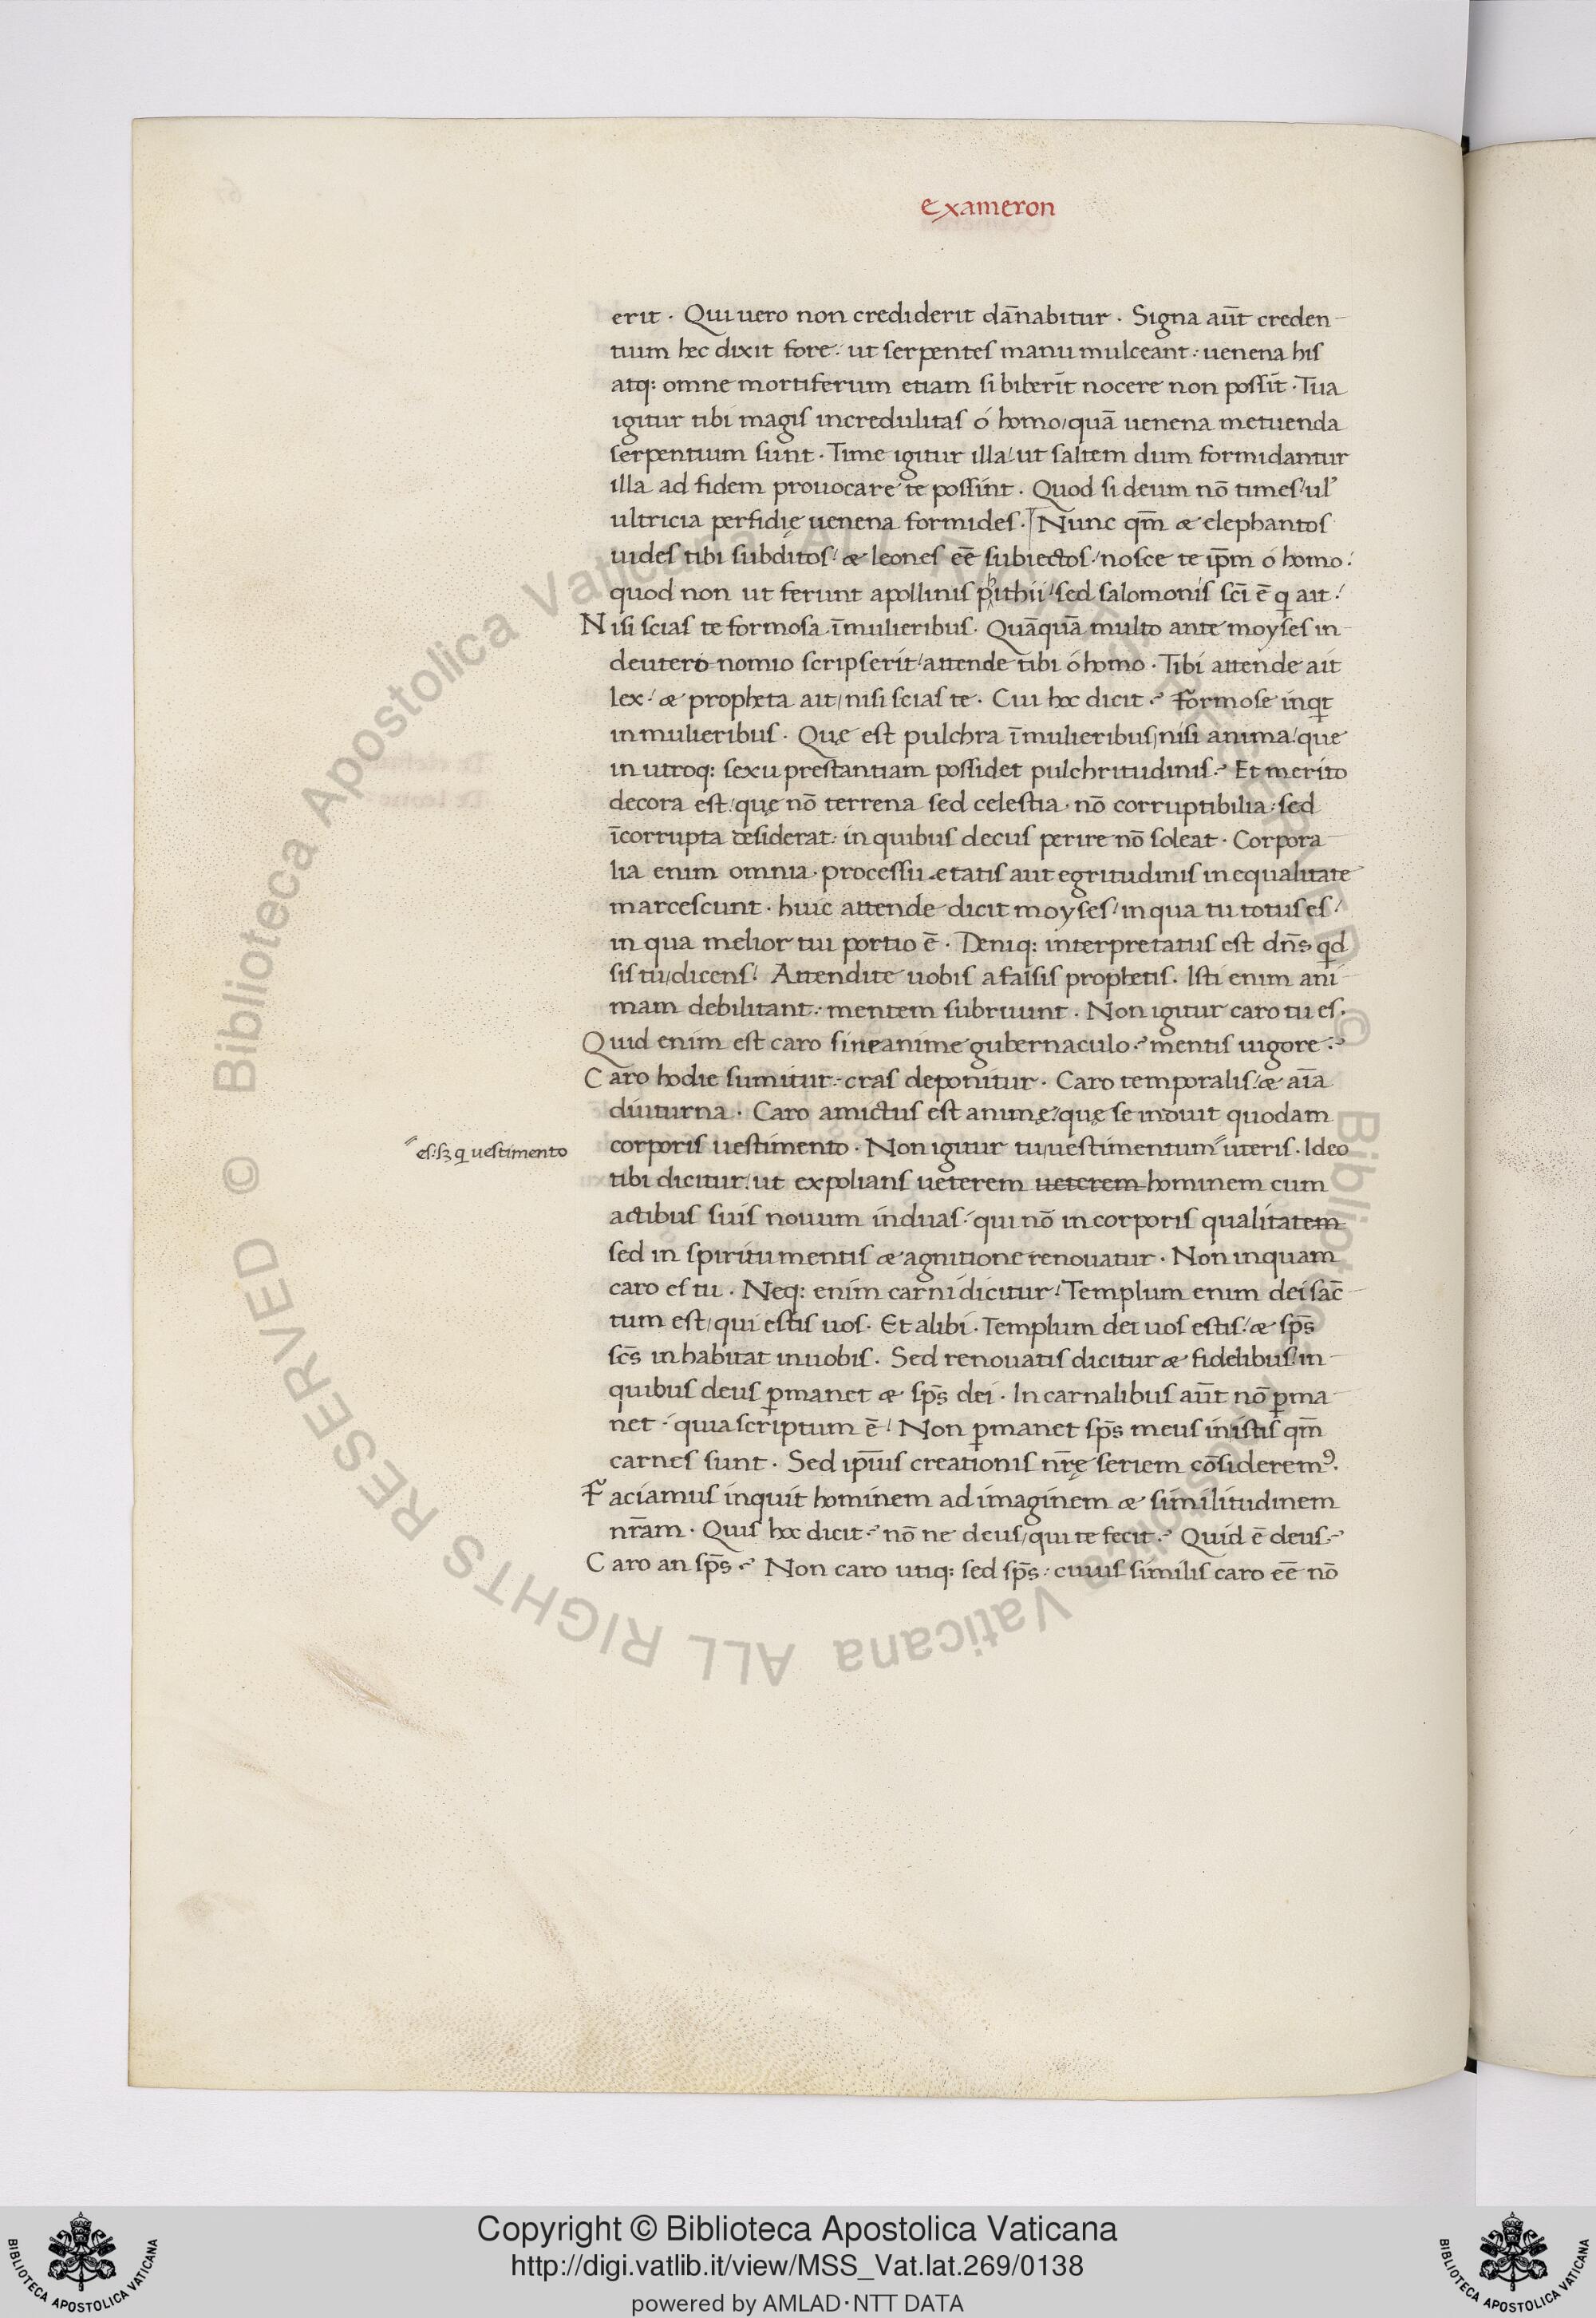 exameron
erit · Qui uero non crediderit dān̄abitur · Signa aūt creden-
tium hęc dixit fore: ut serpentes manu mulceant: uenena his
atq: omne mortiferum etiam si biberīt nocere non possīt · Tua
igitur tibi magis incredulitas ó homo/ quā uenena metuenda
serpentium sunt · Time igitur illa/ ut saltem dum formidantur
illa ad fidem prouocare te possint · Quod si deum nō times/ ul'
ultricia perfidię uenena formides · Nunc qm̄ & elephantos
uides tibi subditos/ & leones eē subiectos/ nosce te ip̄m o homo:
quod non ut ferunt apollinis pithii/ sed salomonis sc̄i ē q ait/
Nisi scias te formosa ī mulieribus · Quāquā multo ante moyses in
deutero nomio scripserit/ attende tibi ó homo · Tibi attende ait
lex/ & propheta ait/ nisi scias te · Cui hoc dicit? Formose inqt
in mulieribus · Quę est pulchra ī mulieribus/ nisi anima/ que
in utroq: sexu prestantiam possidet pulchritudinis? Et merito
decora est/ quę nō terrena sed celestia · nō corruptibilia: sed
īcorrupta desiderat: in quibus decus perire nō soleat · Corpora-
lia enim omnia · processu etatis aut egritudinis inequalitate
marcescunt · huic attende dicit moyses/ in qua tu totus es/
in qua melior tui portio ē · Deniq: interpretatus est dn̄s qd
sis tu/ dicens/ Attendite uobis a falsis prophetis · Isti enim ani-
mam debilitant: mentem subruunt · Non igitur caro tu es ·
Quid enim est caro sine anime gubernaculo? mentis uigore?
Caro hodie sumitur: cras deponitur · Caro temporalis/ & aīa
diuturna · Caro amictus est animę/ quę se induit quodam
corporis uestimento · Non igitur tu/ uestimentum ״ uteris · Ideo
״ es: sꝫ q uestimento
tibi dicitur/ ut expolians ueterem ueterem hominem cum
actibus suis nouum induas/ qui nō in corporis qualitatem
sed in spiritu mentis & agnitione renouatur · Non inquam
caro es tu · Neq: enim carni dicitur/ Templum enim dei sac̄-
tum est/ qui estis uos · Et alibi · Templum dei uos estis/ & sp̄s
sc̄s in habitat in uobis · Sed renouatis dicitur & fidelibus/ in
quibus deus ꝑmanet & sp̄s dei · In carnalibus aūt nō ꝑma-
net · quia scriptum ē/ Non ꝑmanet sp̄s meus in istis qm̄
carnes sunt · Sed ip̄ius creationis nr̄ę seriem cōsideremꝰ ·
Faciamus inquit hominem ad imaginem & similitudinem
nr̄am · Quis hoc dicit? nō ne deus/ qui te fecit? Quid ē deus?
Caro an sp̄s? Non caro utiq: sed sp̄s: cuius similis caro eē nō
© Biblioteca Apostolica Vaticana ALL RIGHTS RESERVED
© Biblioteca Apostolica Vaticana ALL RIGHTS RESERVED
Copyright © Biblioteca Apostolica Vaticana
http://digi.vatlib.it/view/MSS_Vat.lat.269/0138
powered by AMLAD·NTT DATA
BIBLIOTECA APOSTOLICA VATICANA
BIBLIOTECA APOSTOLICA VATICANA